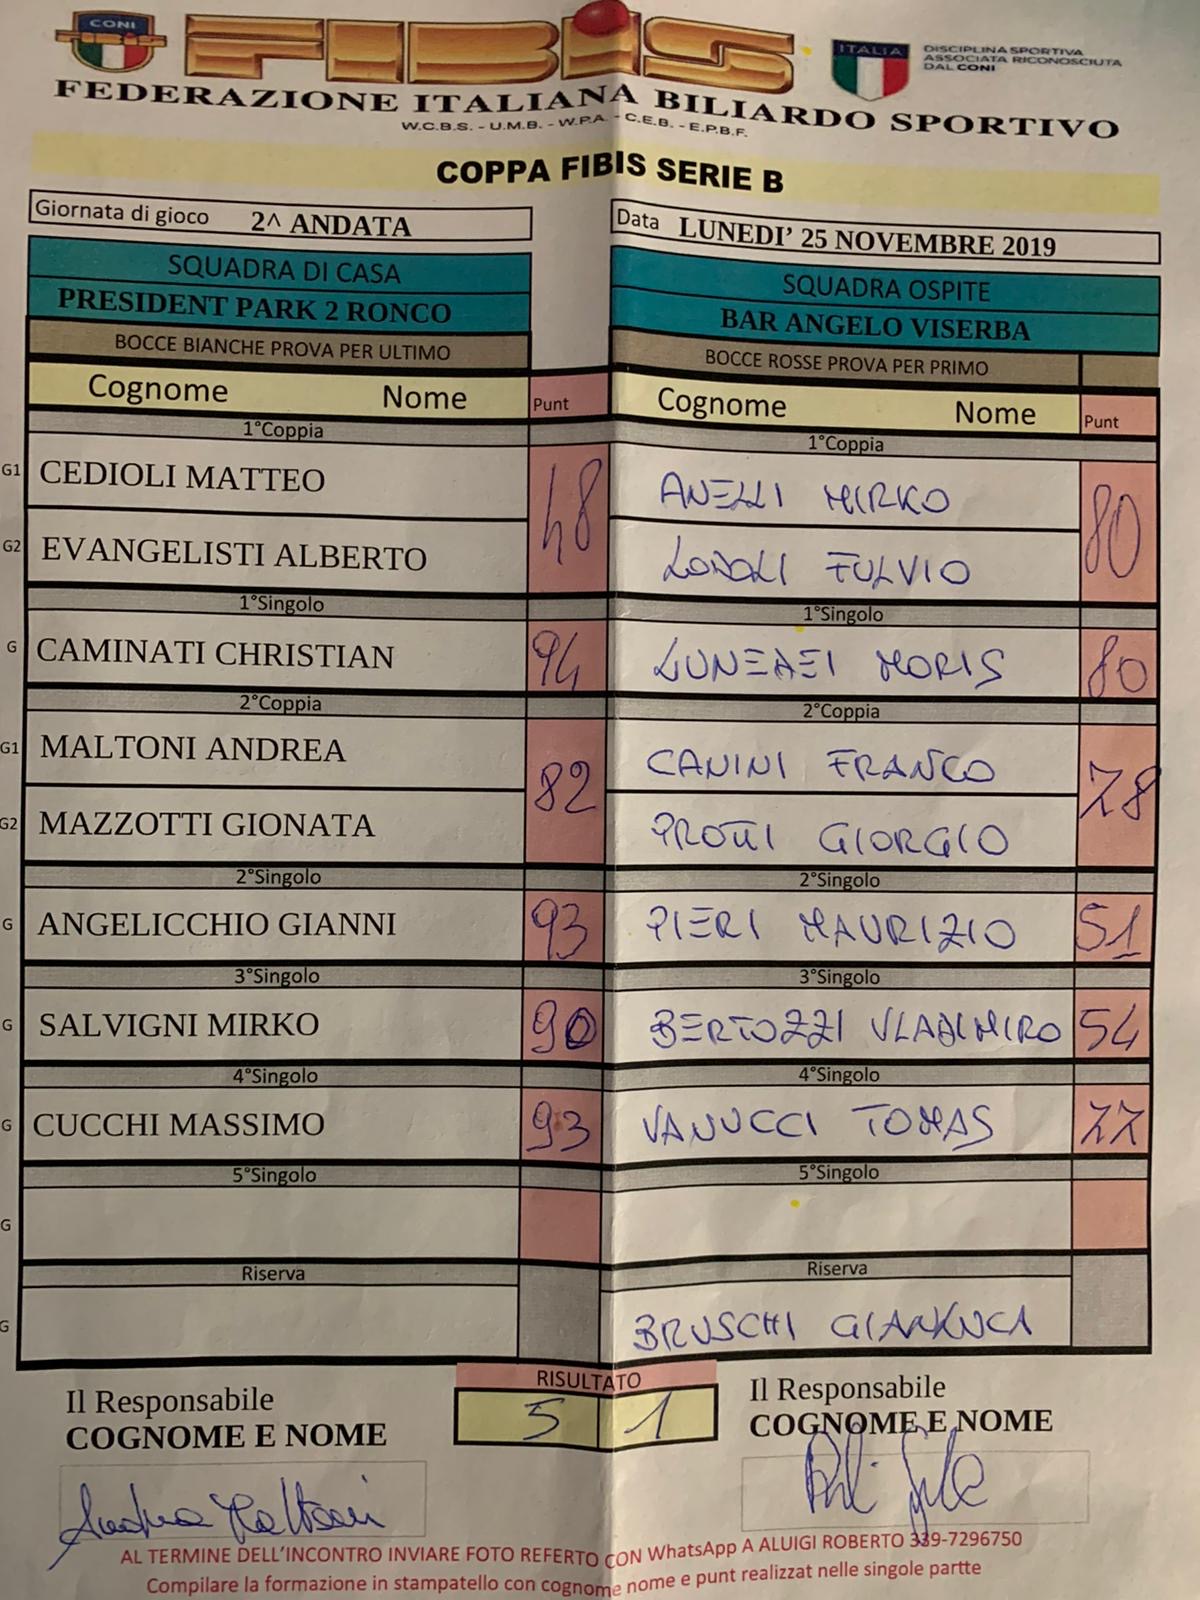 CONI
FIBIS
ITALIA
DISCIPLINA SPORTIVA
ASSOCIATA RICONOSCIUTA
DAL CONI
FEDERAZIONE ITALIANA BILIARDO SPORTIVO
W.C.B.S. - U.M.B. - W.P.A - C.E.B. - E.P.B.F.
COPPA FIBIS SERIE B
Giornata di gioco 2^ ANDATA
Data LUNEDI’ 25 NOVEMBRE 2019
SQUADRA DI CASA
SQUADRA OSPITE
PRESIDENT PARK 2 RONCO
BAR ANGELO VISERBA
BOCCE BIANCHE PROVA PER ULTIMO
BOCCE ROSSE PROVA PER PRIMO
Cognome Nome Punt
Cognome Nome Punt
1°Coppia
1°Coppia
G1 CEDIOLI MATTEO 48
ANELLI MIRKO 80
G2 EVANGELISTI ALBERTO
LODOLI FULVIO
1°Singolo
1°Singolo
G CAMINATI CHRISTIAN 94
MORIS 80
2°Coppia
2°Coppia
G1 MALTONI ANDREA 82
CANINI FRANCO 78
G2 MAZZOTTI GIONATA
PROTTI GIORGIO
2°Singolo
2°Singolo
G ANGELICCHIO GIANNI 93
PIERI MAURIZIO 51
3°Singolo
3°Singolo
G SALVIGNI MIRKO 90
BERTOZZI VLADIMIRO 54
4°Singolo
4°Singolo
G CUCCHI MASSIMO 93
VANUCCI TOMAS 77
5°Singolo
5°Singolo
G
Riserva
Riserva
G
BRUSCHI GIANLUCA
RISULTATO
5 1
Il Responsabile
COGNOME E NOME
Il Responsabile
COGNOME E NOME
Andrea Maltoni
AL TERMINE DELL’INCONTRO INVIARE FOTO REFERTO CON WhatsApp A ALUIGI ROBERTO 339-7296750
Compilare la formazione in stampatello con cognome nome e punt realizzat nelle singole partte